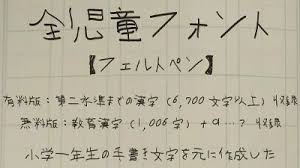 全児童フォント
【フェルトペン】
有料版：第二水準までの漢字（6,700文字以上）収録
無料版：教育漢字（1,006字）+α…？収録
小学一年生の手書き文字を元に作成した